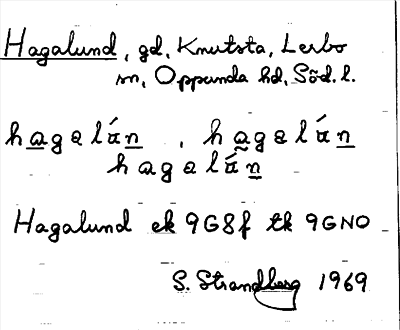 Hagalund, gd, Knutsta, Lerbo
sn, Oppunda hd, Söd. l.
hagalán, hagalán
hagalán
Hagalund ek 9G8f tk 9GNO
S. Strandberg 1969